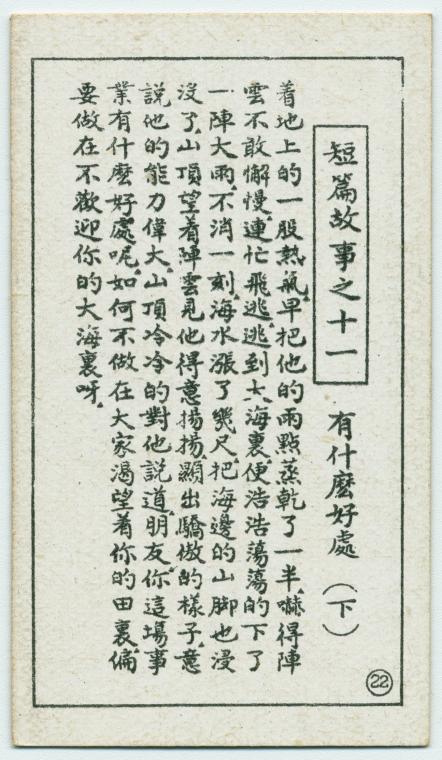 短篇故事之十一
有什麼好處(下)
着地上的一股熱氣,早把他的雨點蒸乾了一半,嚇得陣
雲不敢懈慢,連忙飛逃,逃到大海裏,便浩浩蕩蕩的下了
一陣大雨,不消一刻,海水漲了幾尺把海邊的山脚也浸
沒了,山頂望着陣雲見他得意揚揚,顯出驕傲的樣子,意
說他的能力偉大,山頂冷冷的對他說道,朋友,你這場事
業有什麽好處呢,如何不做在大家渴望着你的田裏,偏
要做在不歡迎你的大海裏呀,
22